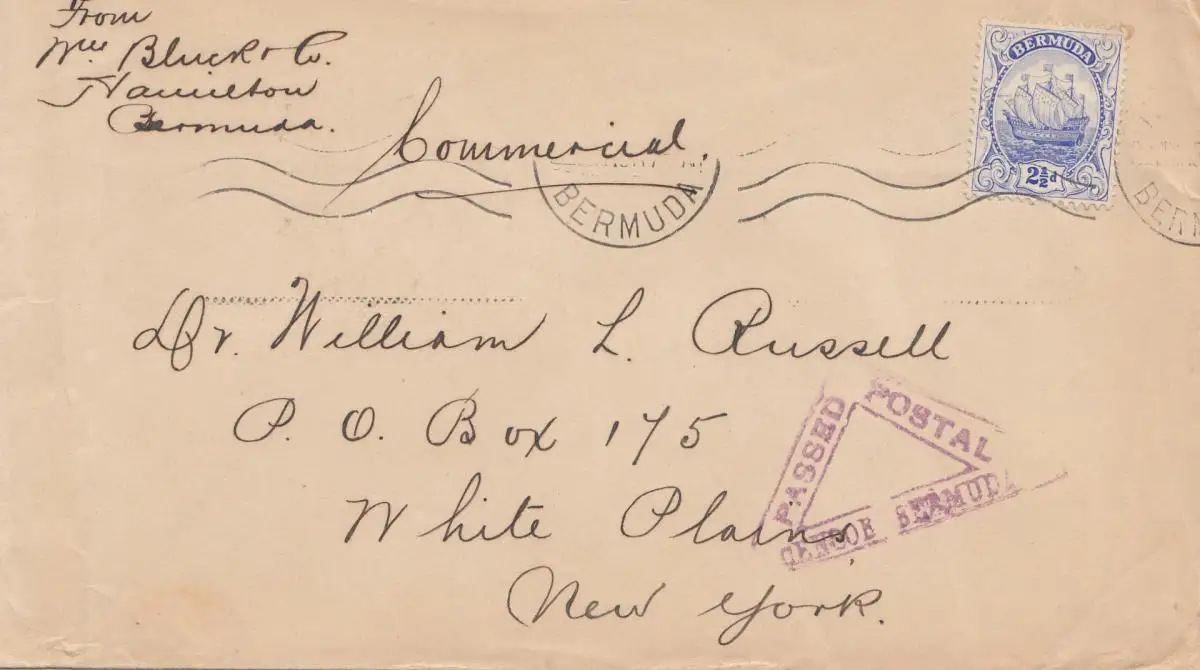 From
Wm Bluck & Co.
Hamilton
Bermuda.
Commercial.
BERMUDA
BERMUDA
2½d
BERM
Dr. William L. Russell
P. O. Box 175
White Plains
New York.
PASSED
POSTAL
CENSOR BERMUDA